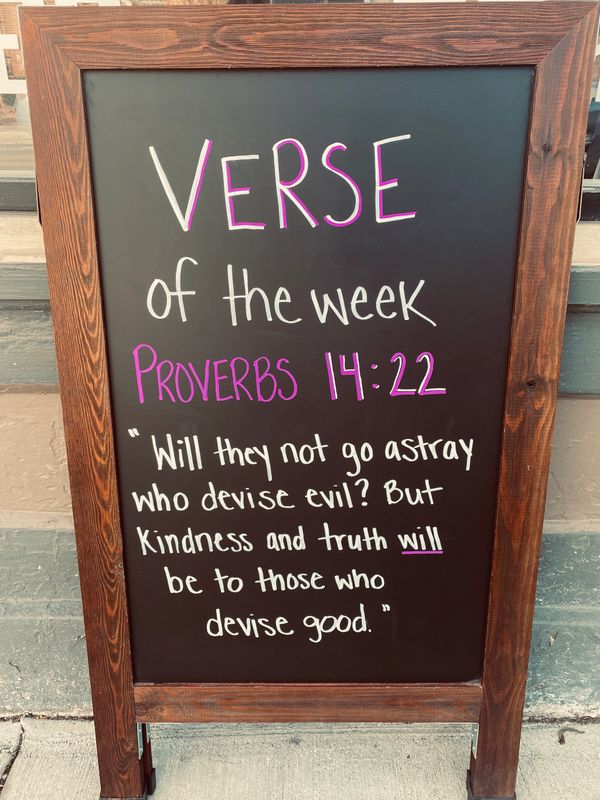 VERSE
of the week
PROVERBS 14:22
"Will they not go astray
who devise evil? But
Kindness and truth will
be to those who
devise good."